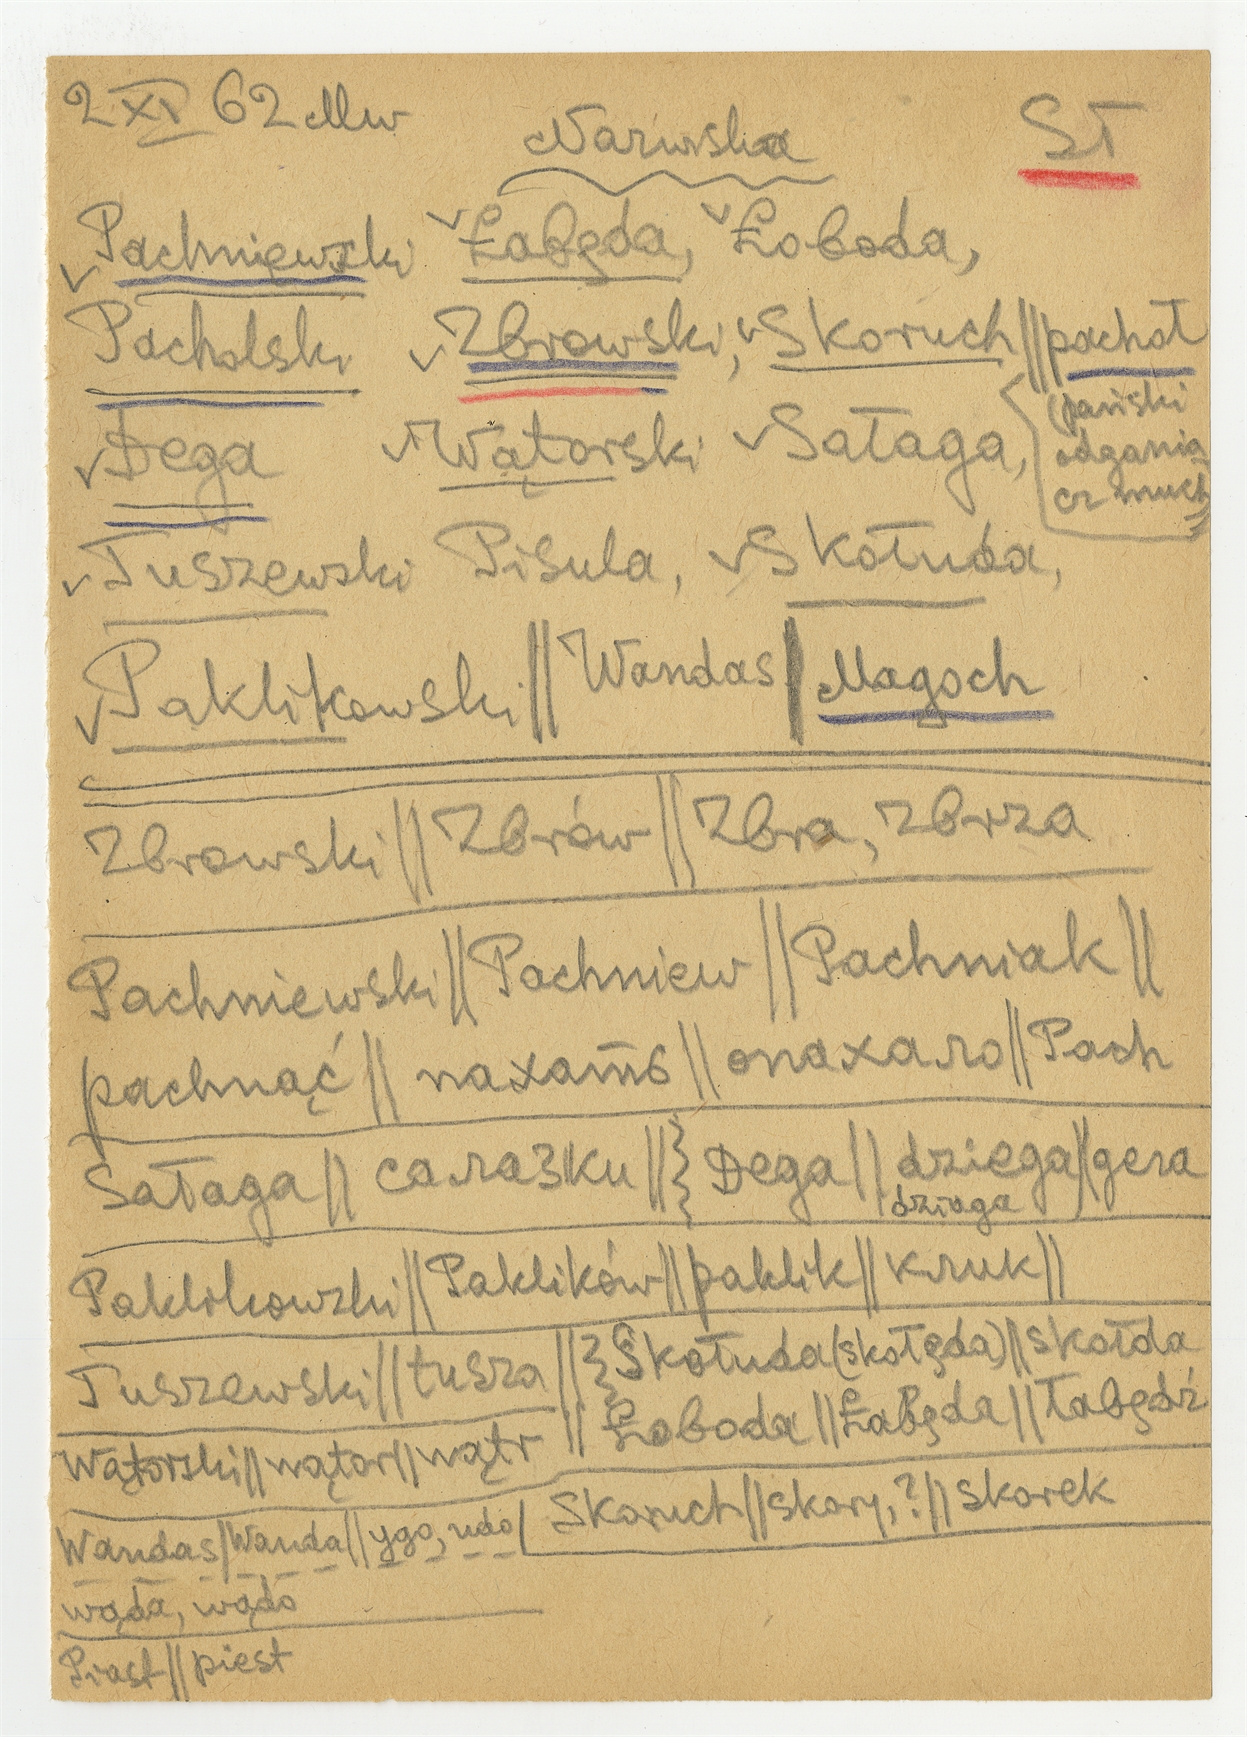 2 XI 62 Mw
Narwska
ST
Pachniewski Łabęda, Łoboda,
Pacholski Zbrowski, Skoruch || pachoł
(pański
Dega Wątorski Sałaga,
odgania
cz much
Tuszewski Pisula, Skołuda,
Paklikowski || Wandas | Magoch
Zbrowski || Zbrów || Zbra, zbrza
Pachniewski || Pachniew || Pachniak ||
pachnąć || пахать || опахало || Pach
Sałaga || салазки || } Dega || dzięga || дега
dziaga
Paklikowski || Paklików || paklik || клик ||
Tuszewski || tusza || } Skołuda (skołęda) || skołda
|| Łoboda || Łabęda || łabędź
Wątorski || wątor || wątr
Skoruch || skory, ? || skorek
Wandas | Wanda || ygo, udo
wąda, wądo
Piast || piest